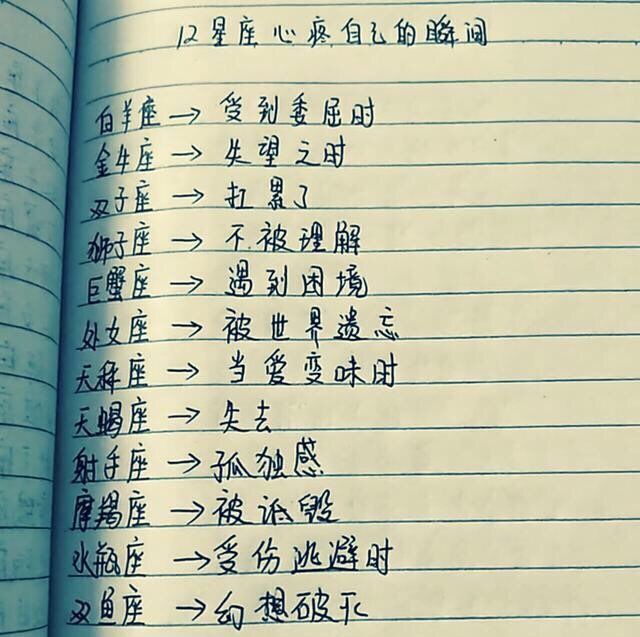 12星座心疼自己的瞬间
白羊座→受到委屈时
金牛座→失望之时
双子座→扛累了
狮子座→不被理解
巨蟹座→遇到困境
处女座→被世界遗忘
天秤座→当爱变味时
天蝎座→失去
射手座→孤独感
摩羯座→被诋毁
水瓶座→受伤逃避时
双鱼座→幻想破灭